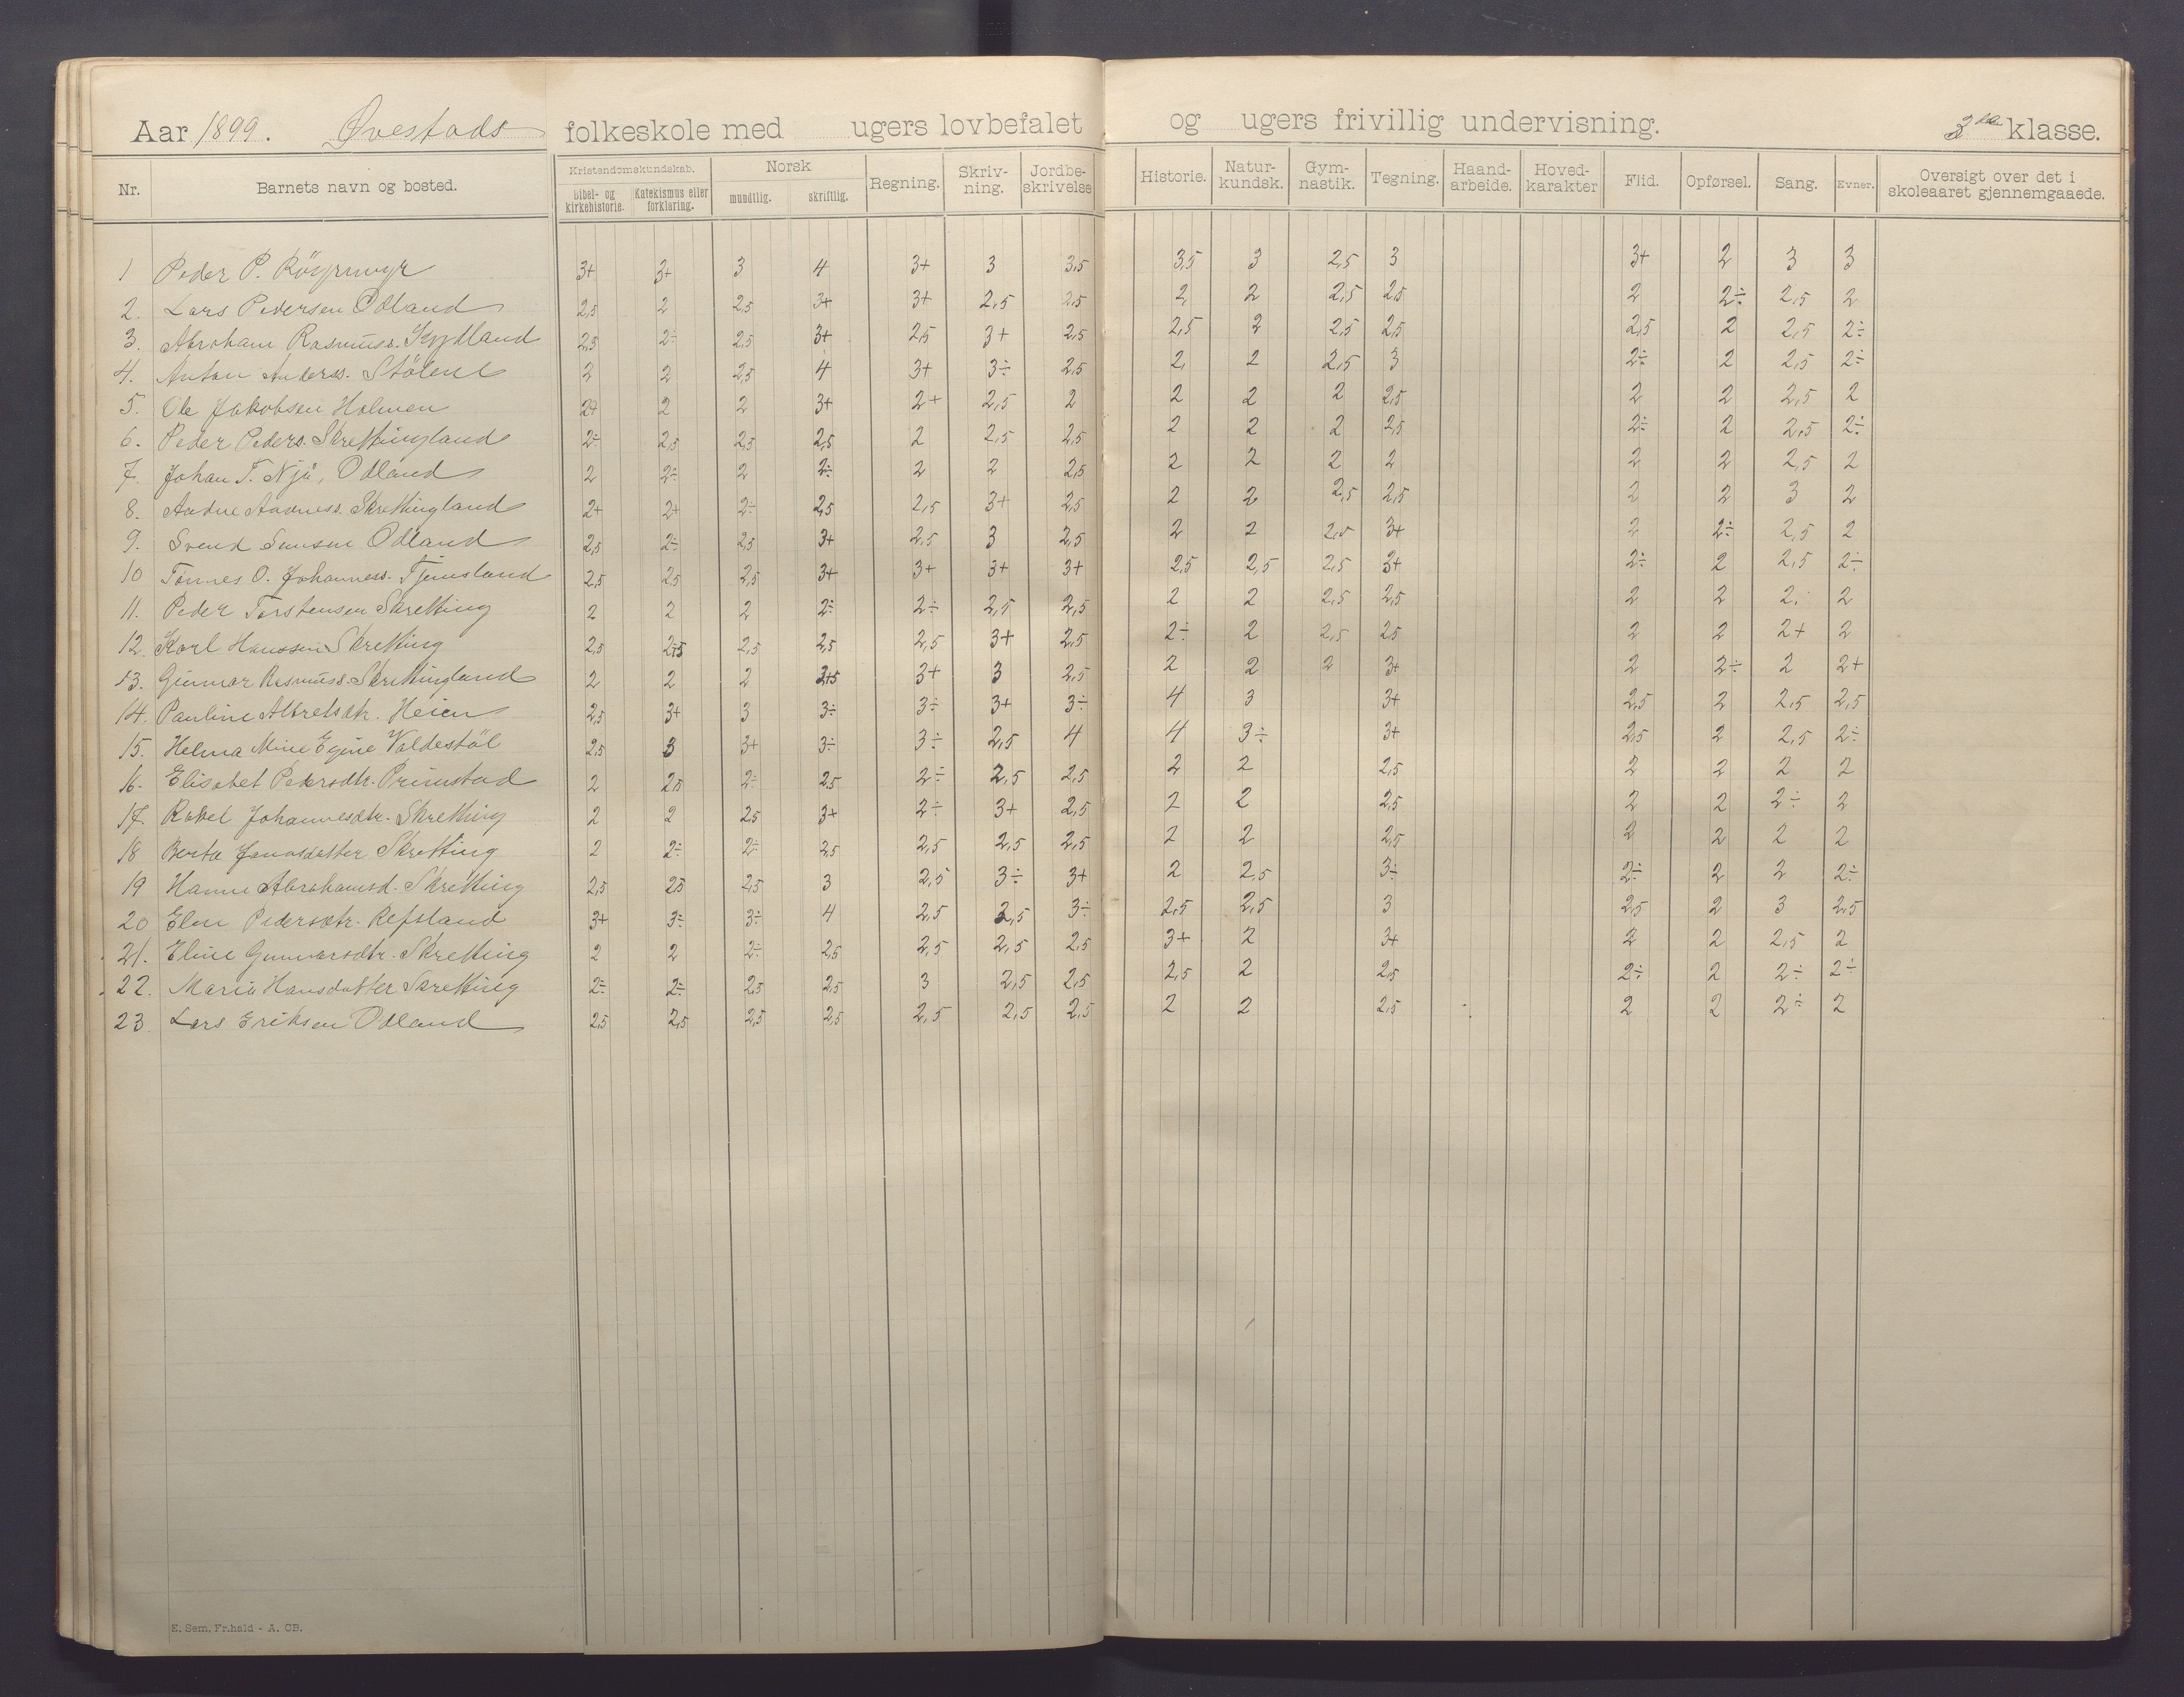 Aar 1899. Øvestads folkeskole med ugers lovbefalet og ugers frivillig undervisning. 3die klasse.
Nr. Barnets navn og bosted. Kristendomskundskab. Bibel- og kirkehistorie. Katekismus eller forklaring. Norsk mundtlig. skriftlig. Regning. Skriv-ning. Jordbe-skrivelse Historie. Natur-kundsk. Gym-nastik. Tegning. Haand-arbeide. Hoved-karakter Flid. Opførsel. Sang. Evner. Oversigt over det i skoleaaret gjennemgaaede.
1 Peder P. 3+ 3+ 3 4 3+ 3 3,5 3,5 3 2,5 3 3+ 2 3 3
2. Lars Pedersen Odland 2,5 2 2,5 3+ 3+ 2,5 2,5 2, 2 2,5 2,5 2 2÷ 2,5 2
3. Abraham Rasmuss. 2,5 2÷ 2,5 3+ 2,5 3+ 2,5 2,5 2 2,5 2,5 2,5 2 2,5 2÷
4. Anton Anderss. Stölene 2 2 2,5 4 3+ 3÷ 2,5 2, 2 2,5 3 2÷ 2 2,5 2÷
5. Ole Jakobsen Holmen 2+ 2 2 3+ 2+ 2,5 2 2 2 2 2,5 2 2 2,5 2
6. Peder Peders. Skrettingland 2÷ 2,5 2,5 2,5 2 2,5 2,5 2 2 2 2,5 2÷ 2 2,5 2÷
7. Johan T. Njå, Odland 2 2÷ 2 2÷ 2 2 2,5 2 2 2 2 2 2 2,5 2
8. Aadne Aadness. Skrettingland 2+ 2+ 2÷ 2,5 2,5 3+ 2,5 2 2 2,5 2,5 2 2 3 2
9. Svend Odland 2,5 2÷ 2,5 3+ 2,5 3 2,5 2 2 2,5 3+ 2 2÷ 2,5 2
10 Tønnes O. Johanness. Tjemsland 2,5 2,5 2,5 3+ 3+ 3+ 3+ 2,5 2,5 2,5 3+ 2÷ 2 2,5 2÷
11. Peder Torstensen Skretting 2 2 2 2÷ 2÷ 2,5 2,5 2 2 2,5 2,5 2 2 2. 2
12. Karl Hanssen Skretting 2,5 2,5 2,5 2,5 3+ 2,5 2÷ 2 2,5 2,5 2 2 2+ 2
13. Gunnar Rasmuss. Skrettingland 2 2 2 3+ 3 2,5 2 2 2 3+ 2 2÷ 2 2+
14. Pauline Albretsdtr. Heien 2,5 3+ 3 3÷ 3÷ 3+ 3÷ 4 3 3+ 2,5 2 2,5 2,5
15. Helma Mine Egine Valdestöl 2,5 3 3+ 3÷ 3÷ 2,5 4 4 3÷ 3+ 2,5 2 2,5 2÷
16. Elisabet Pedersdtr. Primstad 2 2,5 2÷ 2,5 2÷ 2,5 2,5 2 2 2,5 2 2 2 2
17. Rakel Johannesdtr. Skretting 2 2 2,5 3+ 2÷ 3+ 2,5 2 2 2,5 2 2 2÷ 2
18 Berta Jonasdatter Skretting 2 2÷ 2÷ 2,5 2,5 2,5 2,5 2 2 2,5 2 2 2 2
19 Hanne Abrahamsd. Skretting 2,5 2,5 2,5 3 2,5 3÷ 3+ 2 2,5 3÷ 2÷ 2 2 2÷
20 Elen Pedersdtr. Refsland 3+ 3÷ 3÷ 4 2,5 2,5 3÷ 2,5 2,5 3 2,5 2 3 2,5
21. Eline Gunnarsdtr. Skretting 2 2 2÷ 2,5 2,5 2,5 2,5 3+ 2 3+ 2 2 2,5 2
22. Maria Hansdatter Skretting 2÷ 2÷ 2,5 2,5 3 2,5 2,5 2,5 2 2,5 2÷ 2 2÷ 2÷
23 Lars Eriksen Odland 2,5 2,5 2,5 2,5 2,5 2,5 2,5 2 2 2,5 2 2 2÷ 2
E. Sem, Fr.hald - A. CB.